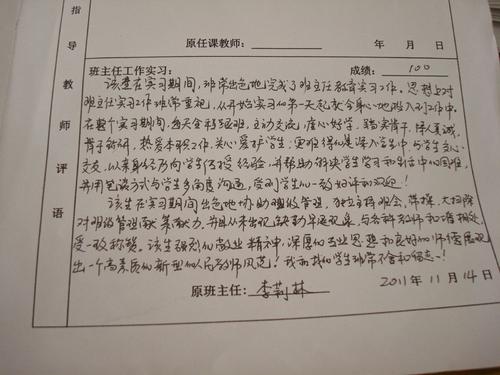 指导教师评语
原任课教师：
年 月 日
班主任工作实习： 成绩：100
该生在实习期间，非常出色地完成了班主任教育实习工作。思想上对
班主任实习工作非常重视，从开始实习的第一天起就全身心地投入到工作中。
在整个实习期间，每天全程跟班，主动交流，虚心好学，踏实肯干，待人真诚，
肯于钻研，热爱本职工作，关心爱护学生，更难得的是深入学生中与学生交心
交友，以亲身经历向学生传授经验，并帮助解决学生学习和生活中的困难，
并用笔谈方式与学生多角度沟通，受到学生的一致好评和欢迎！
该生在实习期间出色地协助班级管理，独立主持班会，早操，大扫除
对班级管理献策献力，并且从未出现缺勤早退现象，与各科教师和谐相处，
受一致称赞。该生强烈的敬业精神，深厚的专业思想和良好的师德展现
出一个高素质的新型的人民教师风范！我和我的学生非常不舍和留恋！
原班主任：李莉林
2011年11月14日